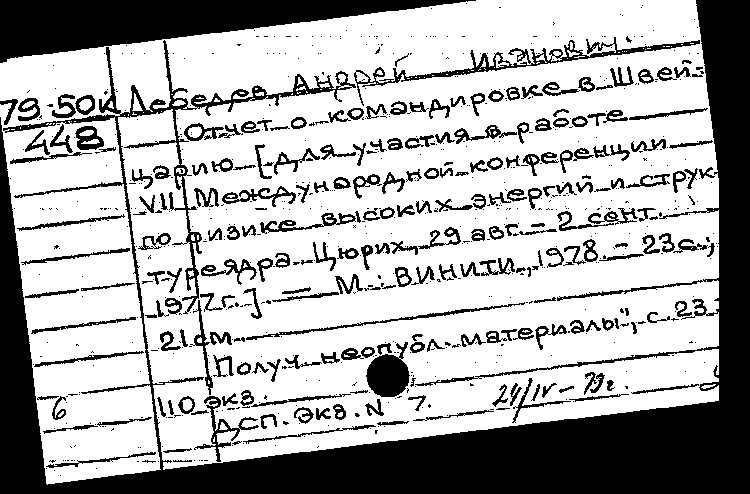 79-50К Лебедев, Андрей Иванович.
448 Отчет о командировке в Швей-
царию [для участия в работе
VII Международной конференции
по физике высоких энергий и струк-
туре ядра. Цюрих, 29 авг. – 2 сент.
1977 г.]. — М.: ВИНИТИ, 1978. – 23 с.;
21 см
Получ. неопубл. материалы", с. 23.
6 110 экз.
ДСП. Экз. N 7. 24/IV – 79г.